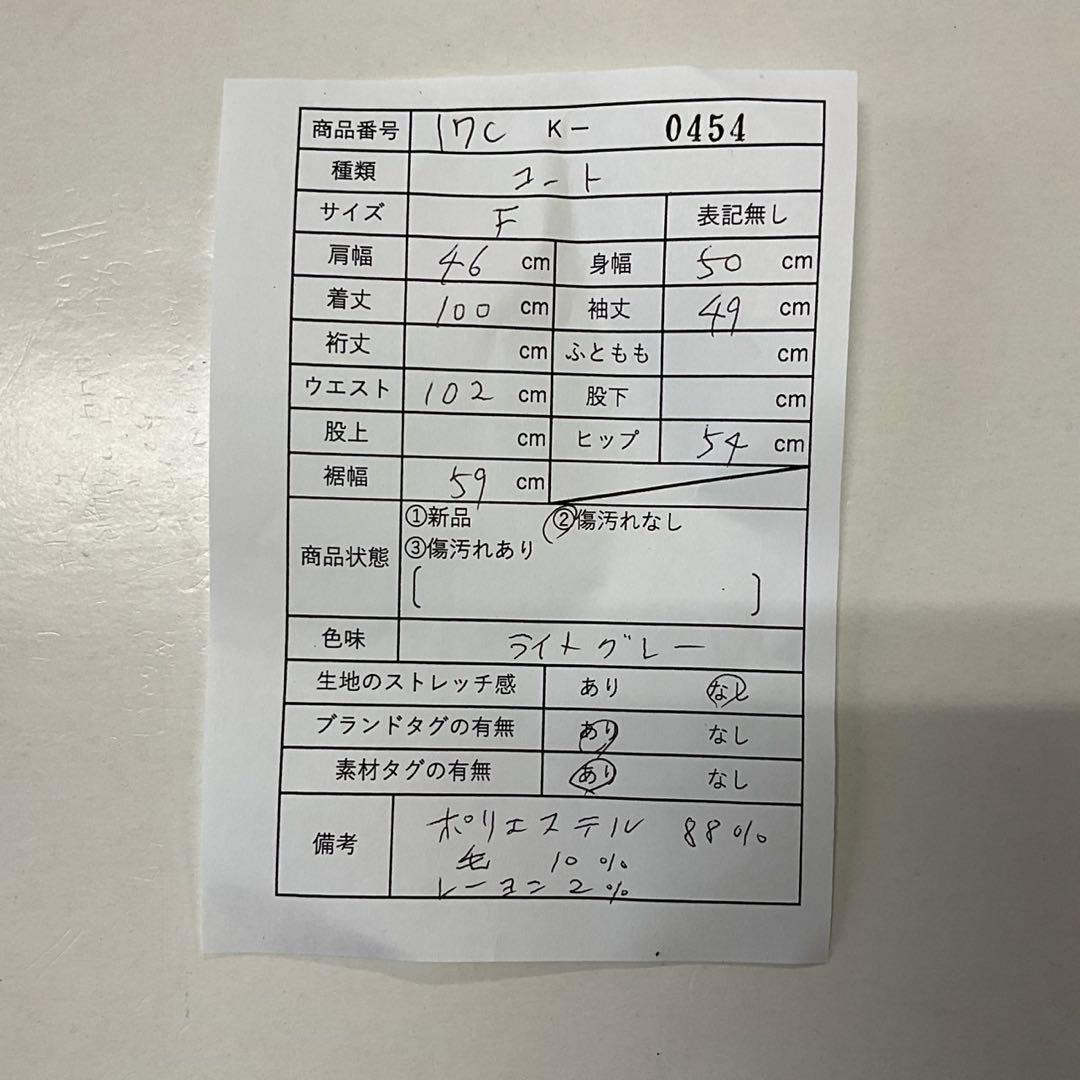 商品番号 17C K- 0454
種類 コート
サイズ F 表記無し
肩幅 46 cm 身幅 50 cm
着丈 100 cm 袖丈 49 cm
裄丈 cm ふともも cm
ウエスト 102 cm 股下 cm
股上 cm ヒップ 54 cm
裾幅 59 cm
商品状態 ①新品 ②傷汚れなし
③傷汚れあり
[ ]
色味 ライトグレー
生地のストレッチ感 あり なし
ブランドタグの有無 あり なし
素材タグの有無 あり なし
備考 ポリエステル 88%
毛 10%
レーヨン 2%